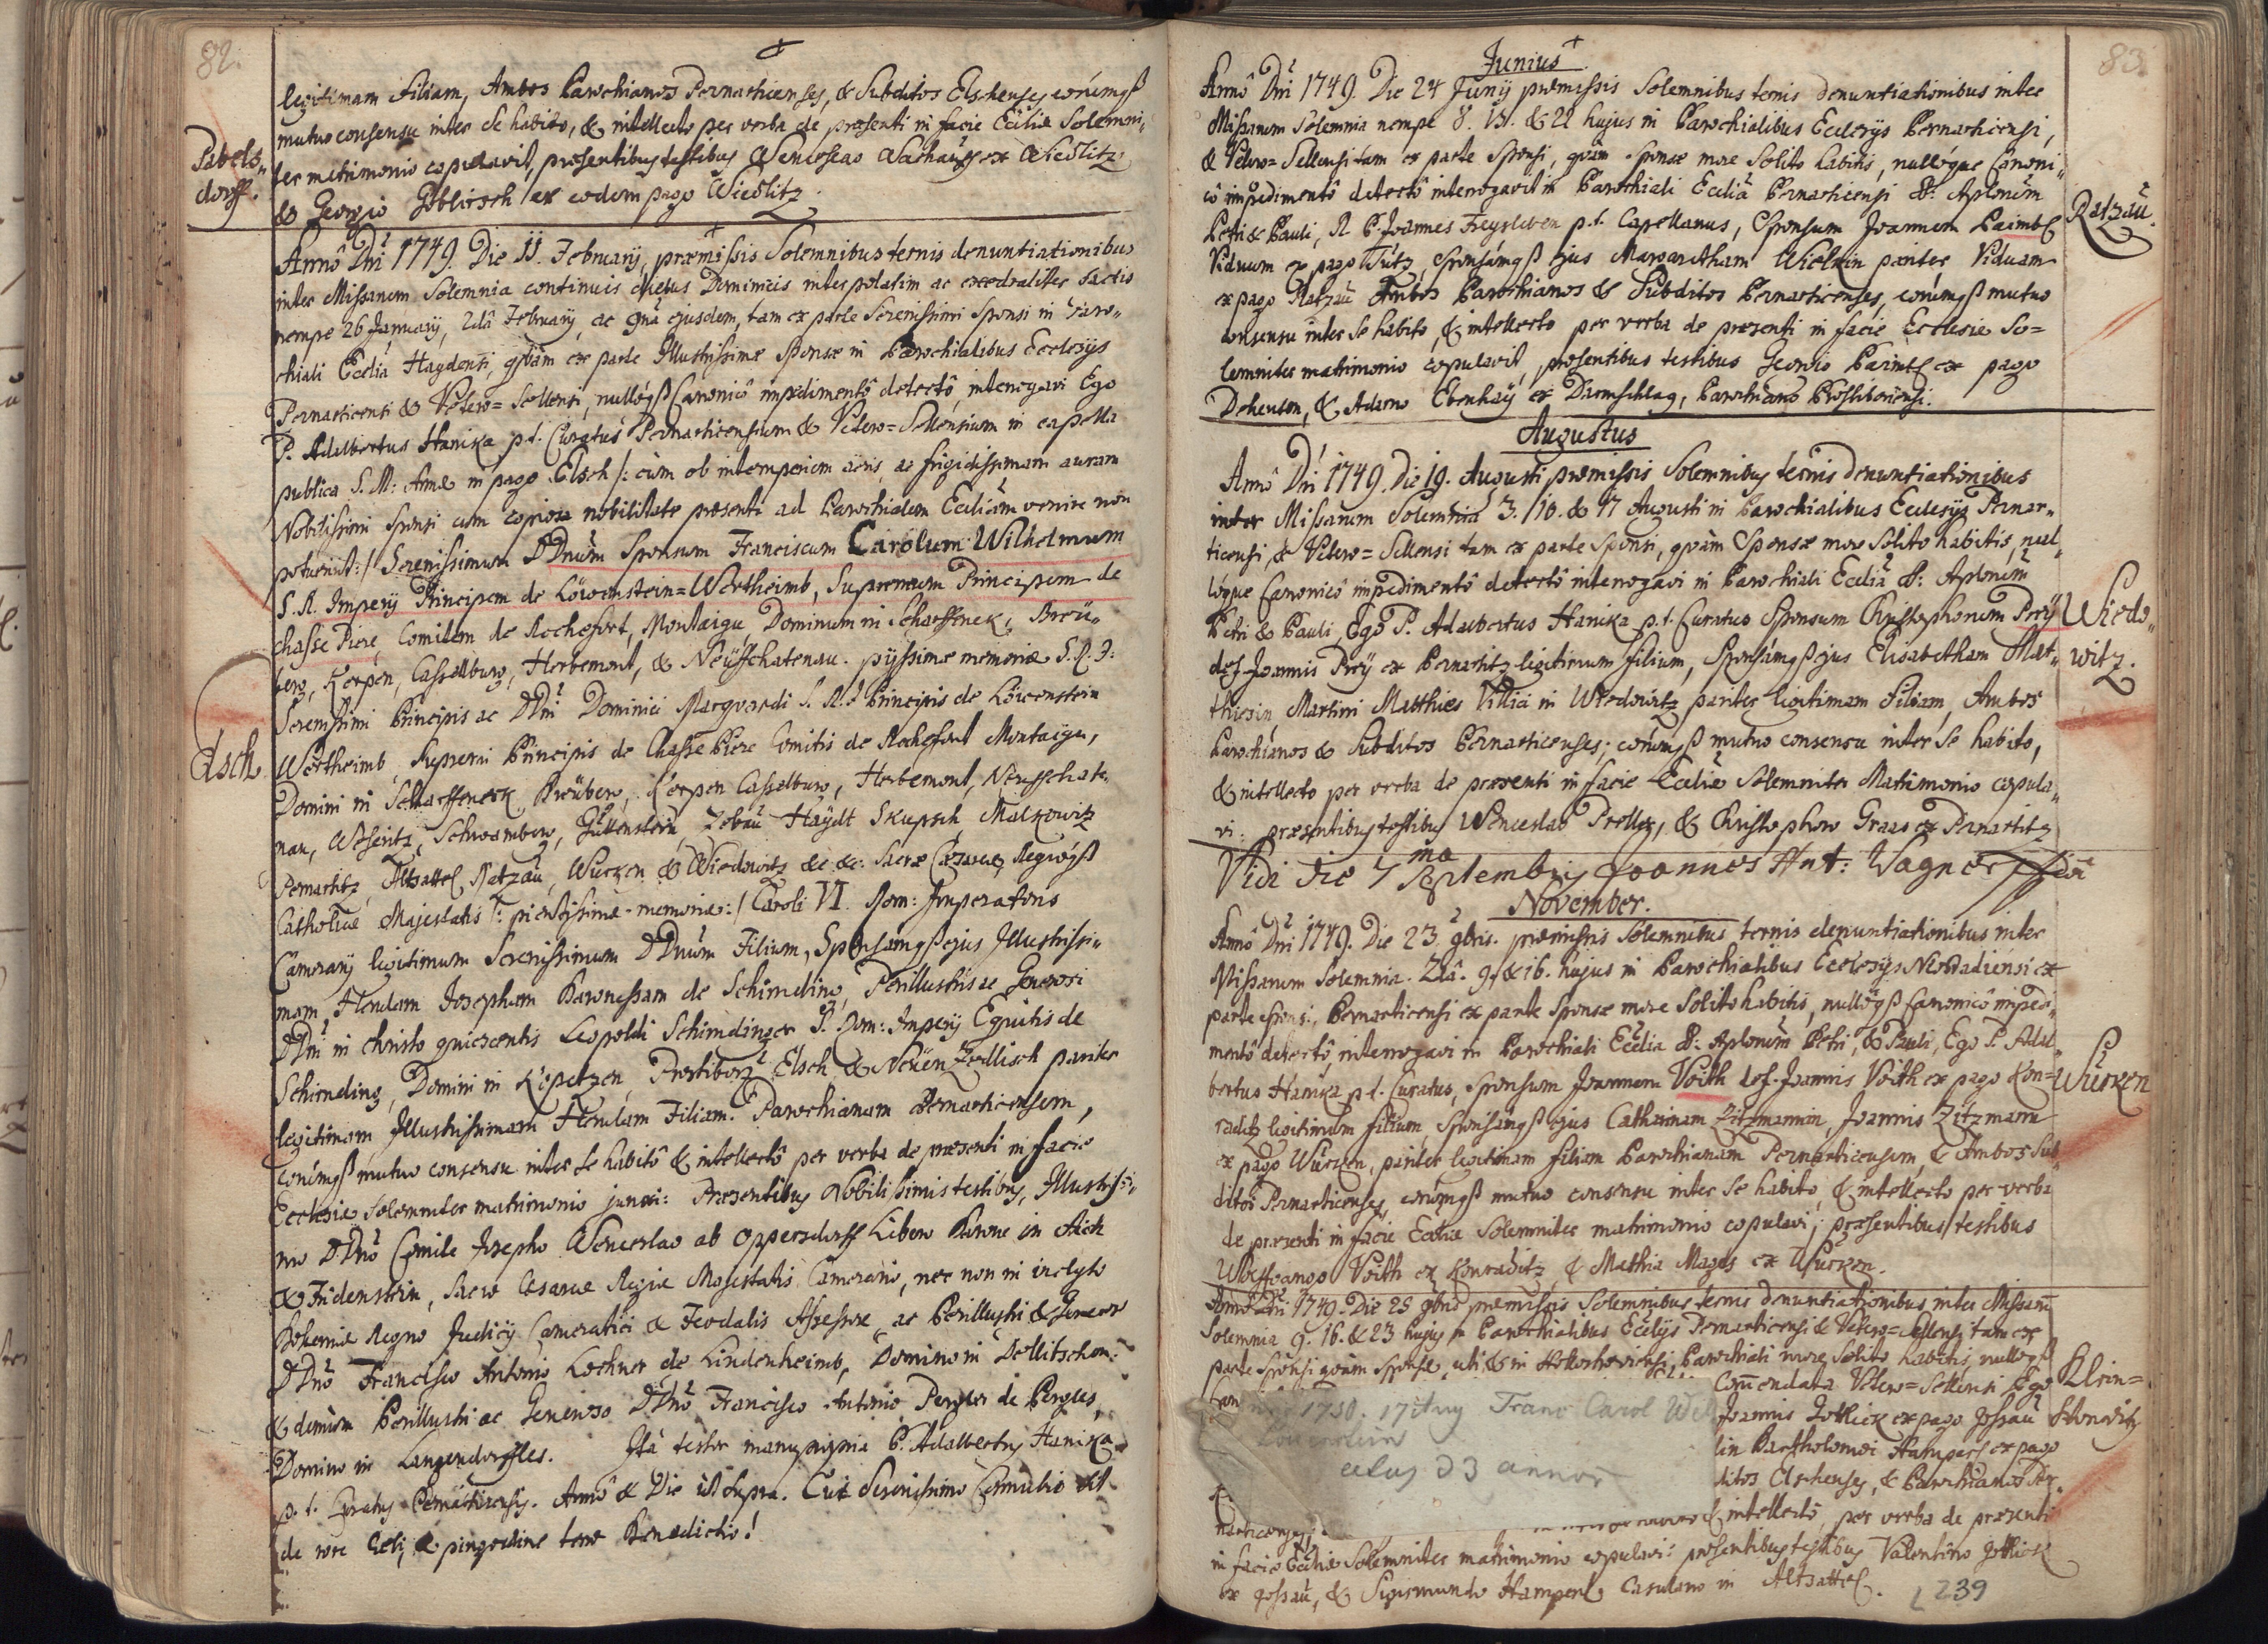 82.
legitimam Filiam, Ambos Parochianos Pernarticenses, & Subditos Elschenses eorúmqß
mutuo consensu inter se habito, & intellecto per verba de præsenti in facie Ecclîæ Solemni„
Pabels„
dorff.
ter matrimonio copulavit, præsentibus testibus Wenceslao Wachau ex Wiedlitz
& Georgio Göblirsch ex eodem pago Wiedlitz.
Annô Dñi 1749. Die 11. February, præmissis Solemnibus ternis denuntiationibus
inter Missarum Solemnia continuis diebus Dominicis interpolatim ac cathedraliter factis
nempe 26 January, 2dâ February, ac 9nâ ejusdem, tam ex parte Serenissimi Sponsi in Paro„
chiali Ecclîa Haydensi, qvàm ex parte Illustrissimæ Sponsæ in Parochialibus Ecclesÿs
Pernarticensi & Vetero=Sellensi, nullóqß Canonicô impedimentô detectô, interrogavi Ego
P. Adalbertus Hanika p.t. Curatus Pernarticensium & Vetero=Sellensium in capella
publica S. M: Annæ in pago Elsch /: cùm ob intemperiem aëris, ac frigidissimam auram
Nobilissimi Sponsi cum copiosa nobilitate præsenti ad Parochialem Ecclîam venire non
potuerint :/ Serenissimum DDnum Sponsum Franciscum Carolum Wilhelmum
S. R. Impery Principem de Löwenstein=Wertheimb, Supremum Principem de
Chasse Piere, Comitem de Rochefort, Montaigu, Dominum in Scharffenek, Breü„
berg, Kerpen, Cassellburg, Herbemont, & Neüffchatenau. pÿssimæ memoriæ S. R. I:
Serenissimi Principis ac DDni Dominici Marqvardi S. R. I Principis de Löwenstein
Elsch
Wertheimb, Supremi Principis de Chasse Piere Comitis de Rochefort Montaigu,
Domini in Scharffeneck Breüberg, Kerpen Casselburg, Herbemont, Neuffchate„
nau, Weseritz, Schwamberg, Guttenstein, Zebau Haÿdt Skupsch, Malkowitz
Pernartitz, Altsattel Ratzau, Wurken & Wiedowitz &c &c: Sacræ Cæsareæ Regiæqß
Catholicæ Majestatis /: pientissimæ memoriæ :/ Caroli VI. Rom: Imperatoris
Camerarÿ legitimum Serenissimum DDnum Filium, Sponsamqß ejus Illustrissi„
mam Hendam Josepham Baronessam de Schirnding, Perillustris ac Generosi
DDni in christo quiescentis Leopoldi Schirndinger S. Rom: Impery Equitis de
Schirnding, Domini in Kopetzen, Prostiborz Elsch & Neüen Zedlisch pariter
legitimam Illustrissimam Hendam Filiam. Parochianam Pernarticensem,
eorúmqß mutuo consensu inter se habitô & intellectô per verba de præsenti in facie
Ecclesiæ Solemniter matrimonio junxi: Præsentibus Nobilissimis testibus, Illustrissi„
mo DDnô Comite Josepho Wenceslao ab Oppersdorff Libero Barone in Aich
& Fridenstein, Sacræ Cæsareæ Regiæ Majestatis Camerario, nec non in inclyto
Bohemiæ Regno Judicÿ Cameratici & Feodalis Assessore, ac Perillustri & Generoso
DDnô Francisco Antonio Lochner de Lindenheimb, Domino in Dollitschen.
& demum Perillustri ac Generoso DDnô Francisco Antonio Pergler de Perglas,
Domino in Langendörffles. Ità testor manu propria P. Adalbertus Hanika
p.t. Curatus Pernarticensis. Annô & Die ut supra. Cui Serenissimo Connubio sit
de rore Cœli, & pingvedine terræ Benedictio!
83.
Junius
Annô Dñi 1749. Die 24 Junÿ præmissis Solemnibus ternis denuntiationibus inter
Missarum Solemnia nempe 8. 15. & 22 hujus in Parochialibus Ecclesÿs Pernarticensi,
& Vetero=Sellensi tam ex parte Sponsi, qvàm Sponsæ more Solito habitis, nullóque Canoni„
cô impedimentô detectô interrogavit in Parochiali Ecclîa Pernarticensi SS: Aplorum
Ratzau.
Petri & Pauli, R. P. Joannes Freysleben p.t. Capellanus, Sponsum Joannem Paimbl
Viduum ex pago Tutz, Sponsámqß ejus Margaretham Wielnin pariter Viduam
ex pago Ratzau Ambos Parochianos & Subditos Pernarticenses, eorúmqß mutuo
consensu inter se habito, & intellecto per verba de præsenti in facie Ecclesiæ So=
lemniter matrimonio copulavit, præsentibus testibus Georgio Paimbl ex pago
Dehenten, & Adamo Ebenhay ex Darmschlag, Parochiano Prostiboriensi.
Augustus
Annô Dñi 1749. Die 19. Augusti præmissis Solemnibus ternis denuntiationibus
inter Missarum Solemnia 3. /10. & 17 Augusti in Parochialibus Ecclesÿs Pernar„
ticensi & Vetero=Sellensi tam ex parte Sponsi, qvàm Sponsæ more Solito habitis, nul„
lóque Canonicô impedimentô detectô interrogavi in Parochiali Ecclîa SS: Aplorum
Petri & Pauli Ego P. Adalbertus Hanika p.t. Curatus Sponsum Christophorum Preÿ
Wiedo„
witz.
def. Joannis Preÿ ex Pernartitz legitimum filium, Sponsámqß ejus Elisabetham Mat„
thiesin Martini Matthies Villici in Wiedowitz pariter legitimam Filiam, Ambos
Parochianos & Subditos Pernarticenses; eorúmqß mutuo consensu inter se habito,
& intellecto per verba de præsenti in facie Ecclîæ Solemniter Matrimonio copula„
vi: præsentibus testibus Wenceslao Preller, & Christophoro Graas ex Pernartitz
Vidi die 7ma Septembris Joannes Ant: Wagner
November.
Annô Dñi 1749. Die 23. 9bris. præmissis Solemnibus ternis denuntiationibus inter
Missarum Solemnia. 2dâ. 9. & 16. hujus in Parochialibus Ecclesÿs Neostadiensi ex
parte Sponsi, Pernarticensi ex parte Sponsæ more Solito habitis, nullóqß Canonicô impedi„
mentô detectô, interrogavi in Parochiali Ecclîa SS: Aplorum Petri, & Pauli, Ego P. Adal„
bertus Hanika p.t. Curatus, Sponsum Joannem Voith def. Joannis Voith ex pago Kon=
Würken
raditz legitimum filium, Sponsámqß ejus Catharinam Zitzmannin, Joannis Zitzmann
ex pago Würken, pariter legitimam filiam Parochianam Pernarticensem, & Ambos Sub„
ditos Pernarticenses, eorúmqß mutuo consensu inter se habito, & intellecto per verba
de præsenti in facie Ecclîæ Solemniter matrimonio copulavi; præsentibus testibus
Wolffgango Voith ex Konraditz, & Mathia Mages ex Würken.
Annô Dñi 1749. Die 25 9bris præmissis Solemnibus ternis denuntiationibus inter Missarũ
Solemnia 9. 16. & 23 hujus in Parochialibus Ecclÿs Pernarticensi & Vetero=Sellensi tam ex
parte Sponsi qvàm Sponsæ, uti & in Parochiali more Solito habitis, nullóqß
Klein=
Can
Com̃endata Vetero=Sellensi Ego
1750. 17 Aug Franc Carol Wil
Löwenstein
Joannis Gottlick ex pago Gossau
lin Bartholomæi Hamperl ex pago
ætas 33 annor
ditos Elschenses, & Parochianos Per„
narticenses;
& intellectô, per verba de præsenti
in facie Ecclîæ Solemniter matrimonio copulavi: præsentibus testibus Valentino Gottlick
ex Gossau, & Sigismundo Hamperl Casulano in Altsattel.
239